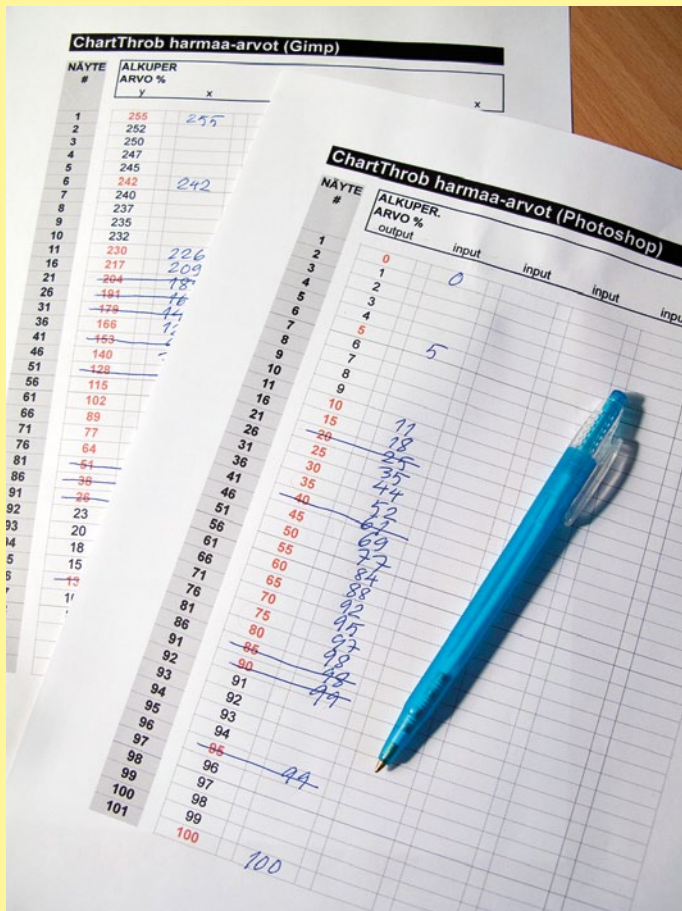 ChartThrob harmaa-arvot (Gimp)
NÄYTE ALKUPER
# ARVO %
y x x
1 255 255
2 252
3 250
4 247
5 245
6 242 242
7 240
8 237
9 235
10 232
11 230 226
16 217 209
21 204
26 191
31 179
36 166
41 153
46 140
51 128
56 115
61 102
66 89
71 77
76 64
81 51
86 38
91 26
92 23
93 20
18
15
13
ChartThrob harmaa-arvot (Photoshop)
NÄYTE ALKUPER.
# ARVO %
output input input input input
1 0 0
2 1
3 2
4 3
5 4
6 5 5
7 6
8 7
9 8
10 9
11 10 11
16 15 18
21 20 25
26 25 35
31 30 44
36 35 52
41 40 62
46 45 69
51 50 77
56 55 84
61 60 88
66 65 92
71 70 95
76 75 97
81 80 98
86 85 98
91 90 99
92 91
93 92
94 93
95 94
96 95 99
97 96
98 97
99 98
100 99
101 100 100